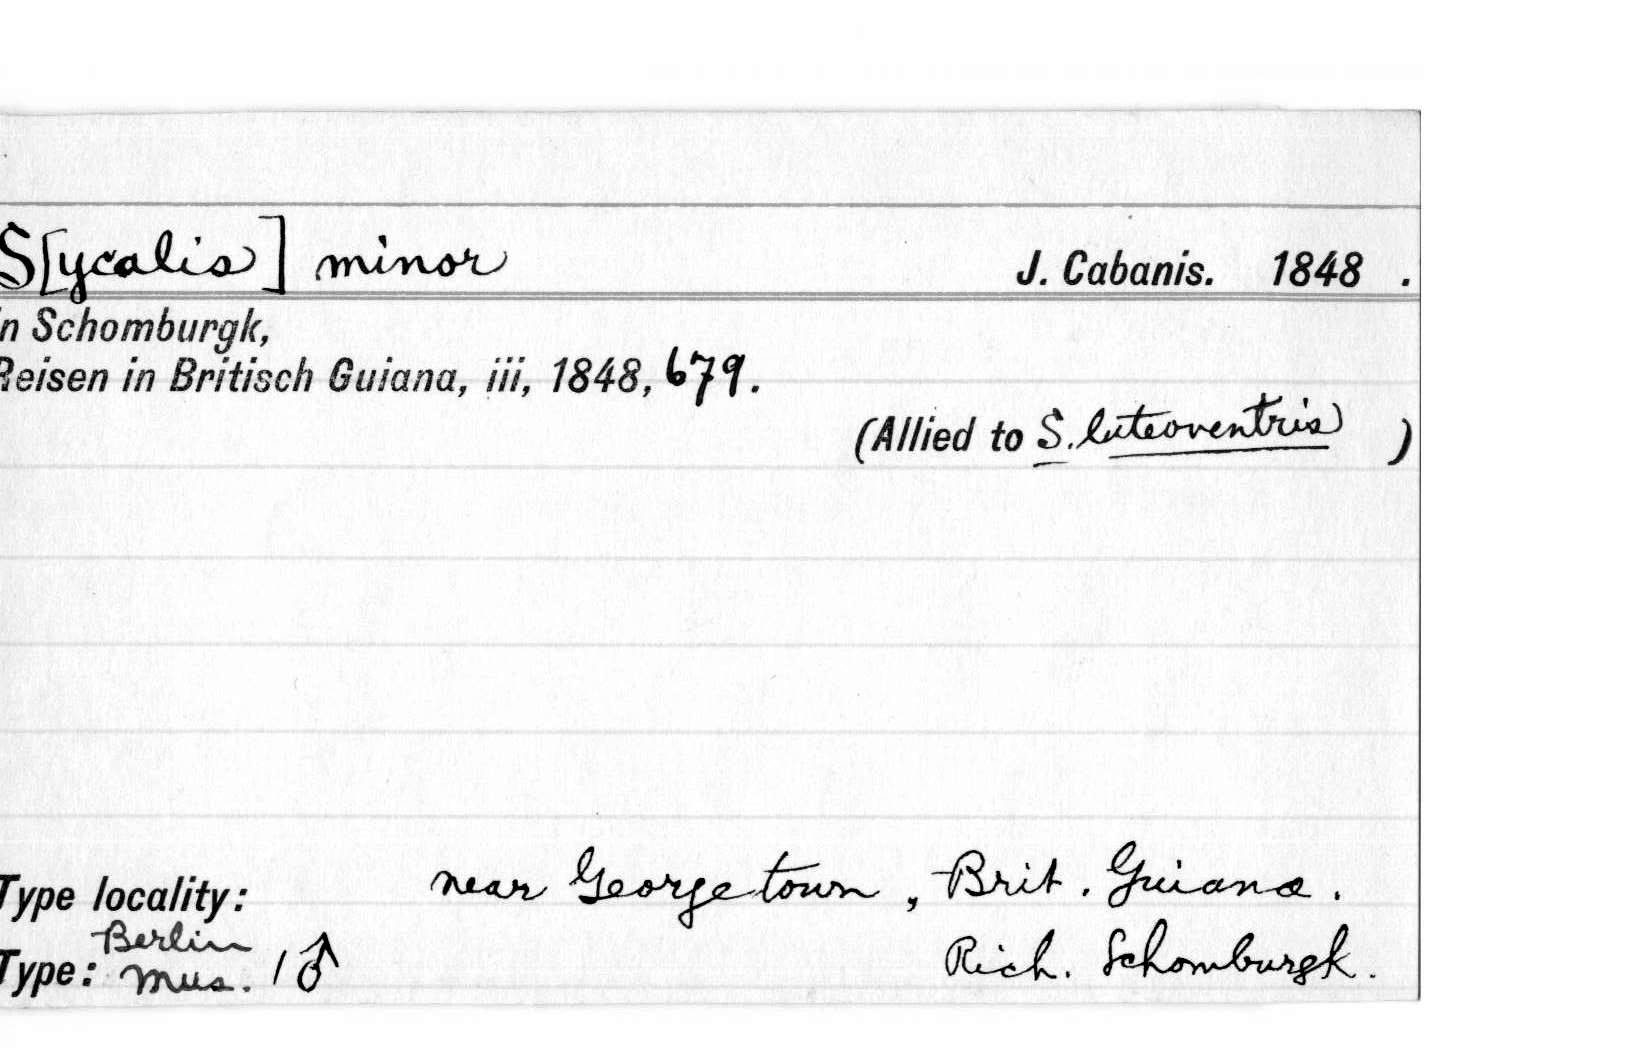 S[ycalis] minor J. Cabanis. 1848 .
in Schomburgk,
Reisen in Britisch Guiana, iii, 1848, 679.
(Allied to S. luteoventris )
Type locality: near Georgetown, Brit. Guiana.
Type: Berlin Mus. 1♂ Rich. Schomburgk.